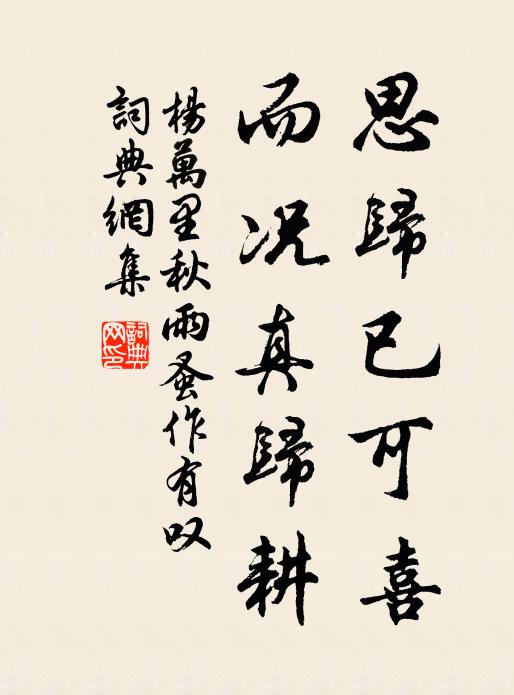 思歸已可喜
而况真歸耕
楊萬里秋雨蚤作有叹
詞典網集
詞典網印